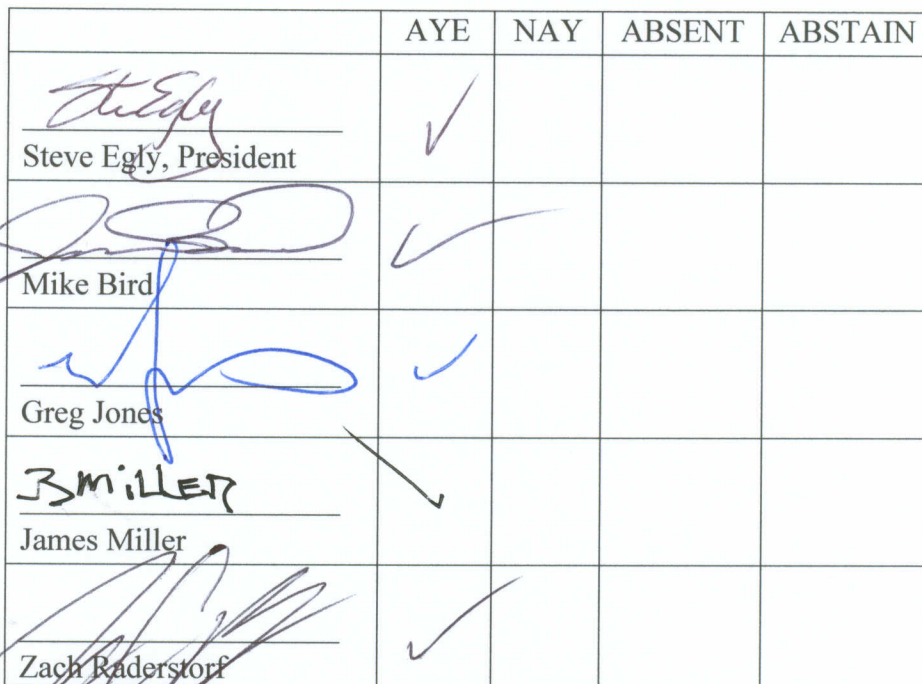 AYE NAY ABSENT ABSTAIN
Steve Egly, President
Mike Bird
Greg Jones
Miller
James Miller
Zach Raderstorf